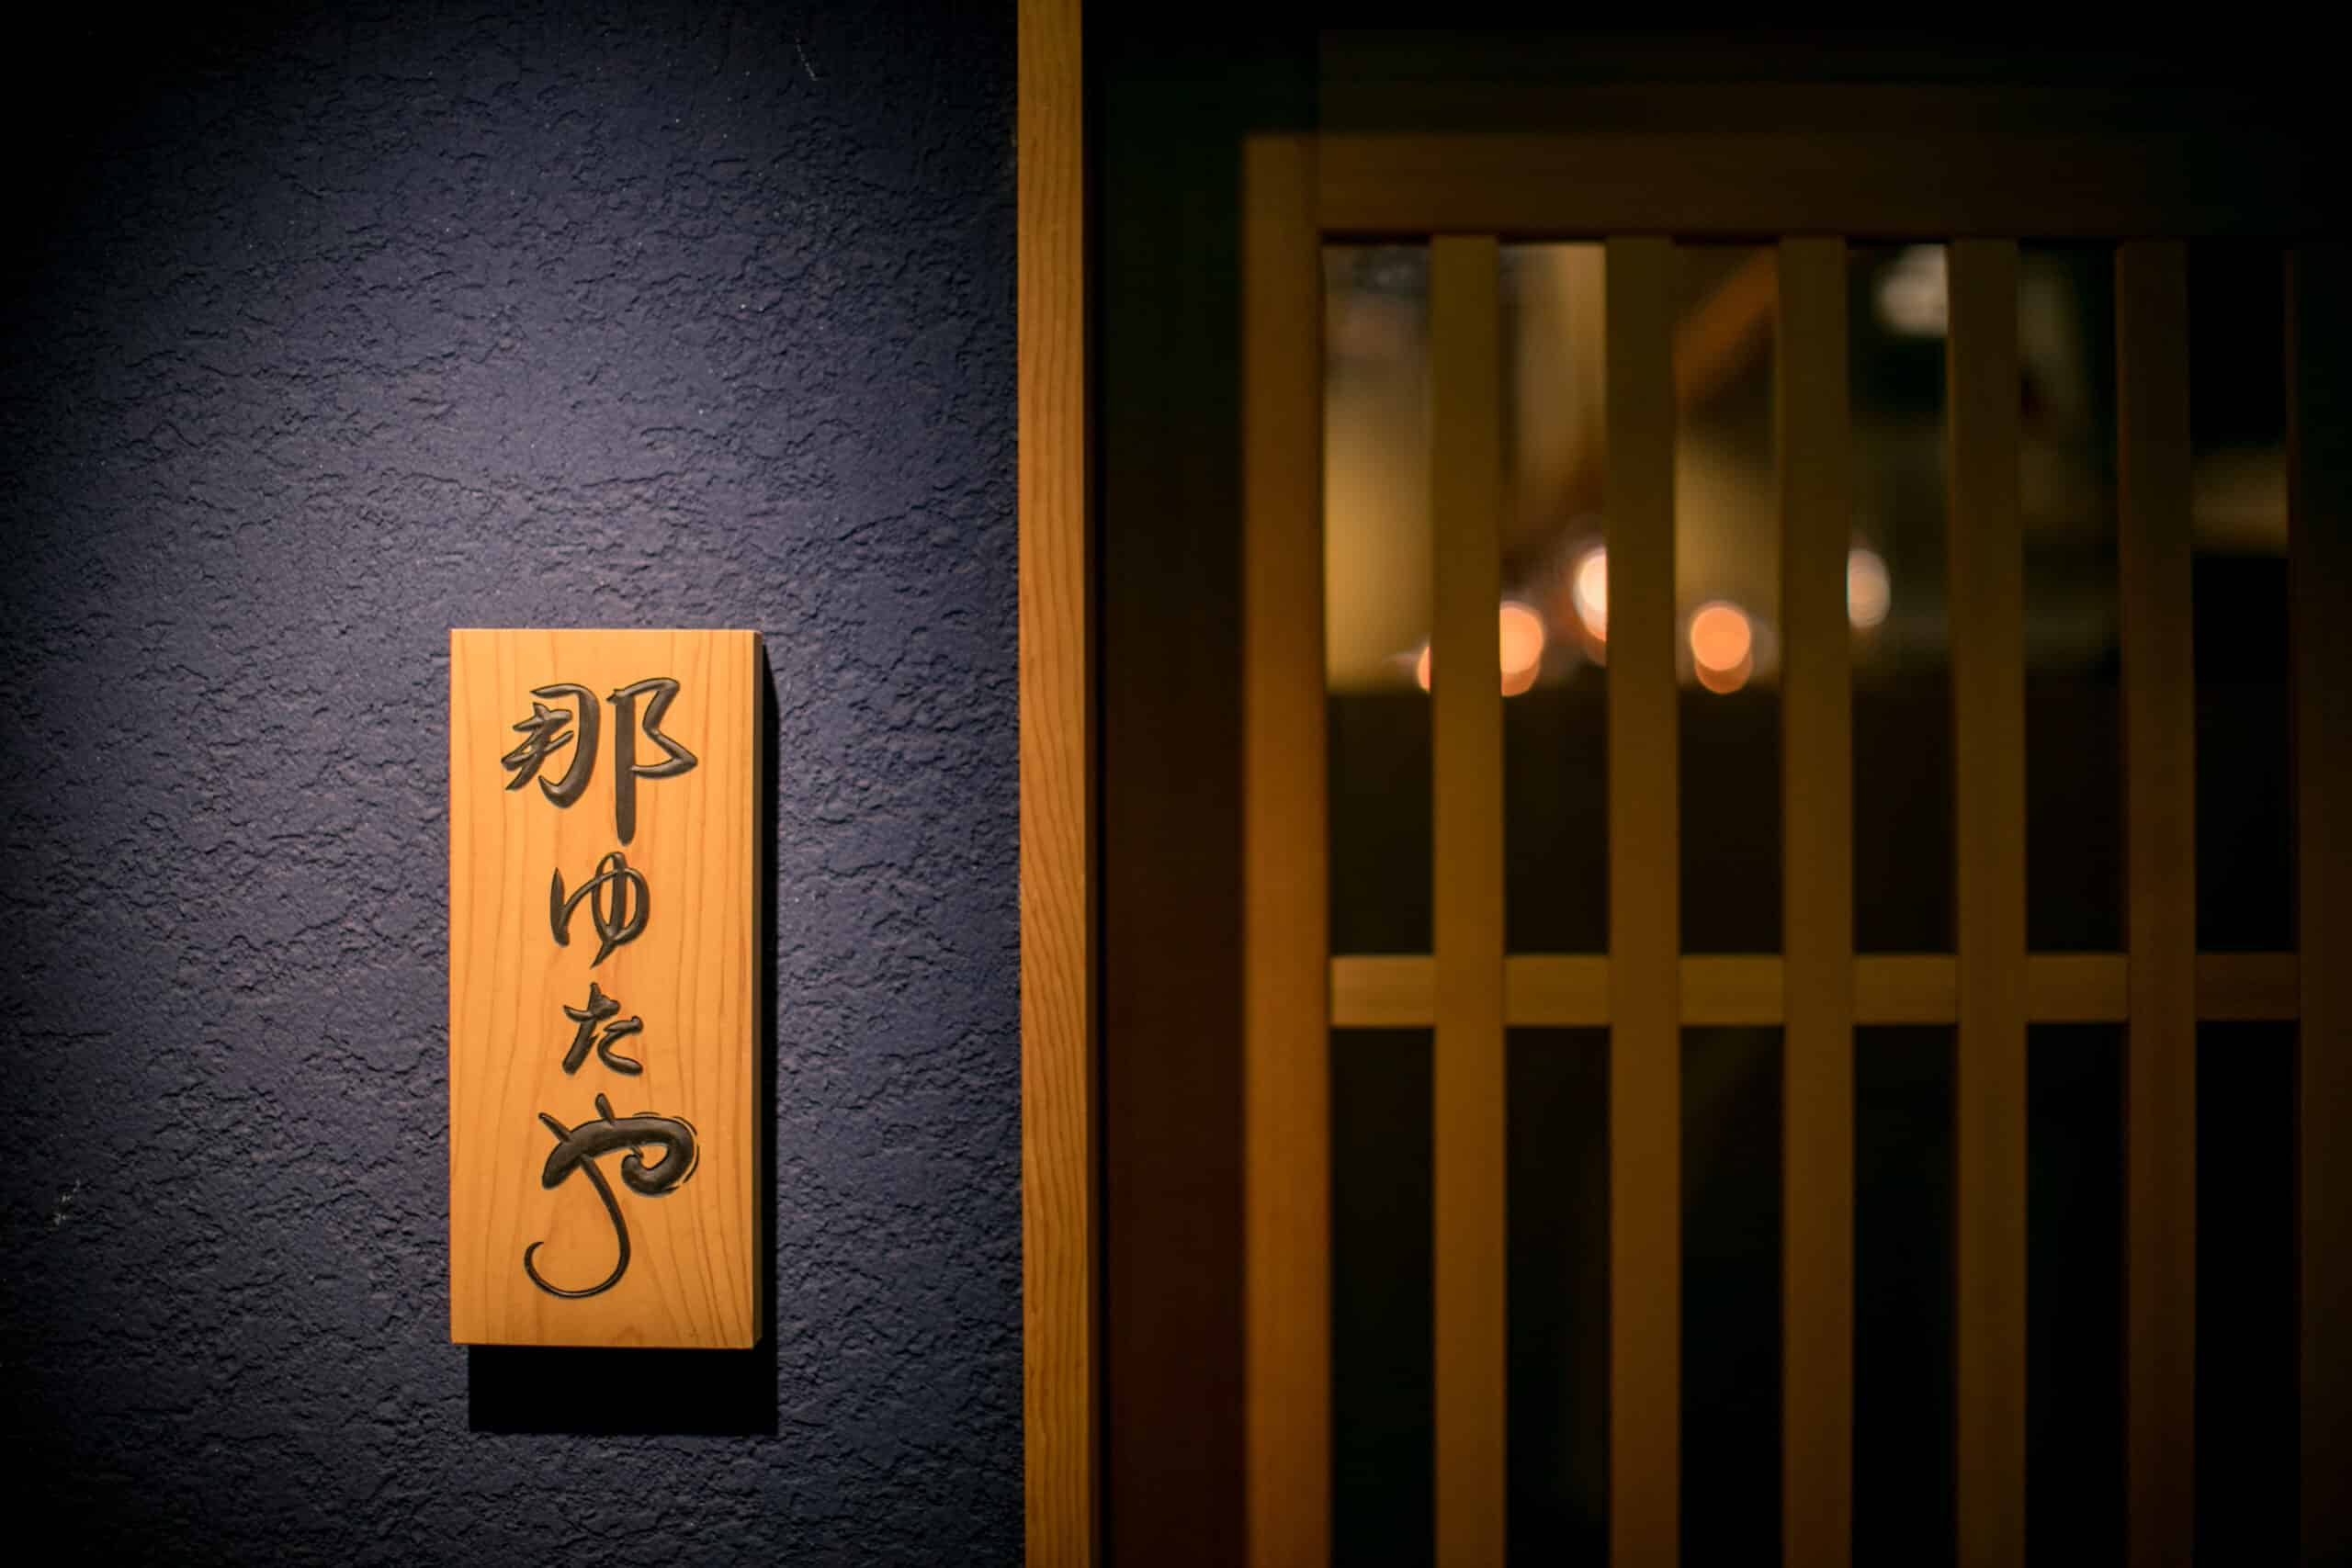 那ゆたや